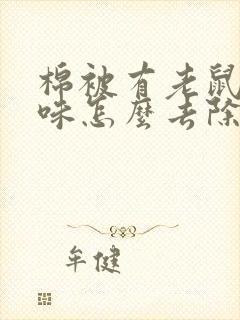 棉被有老鼠
味怎麽去除
牟健